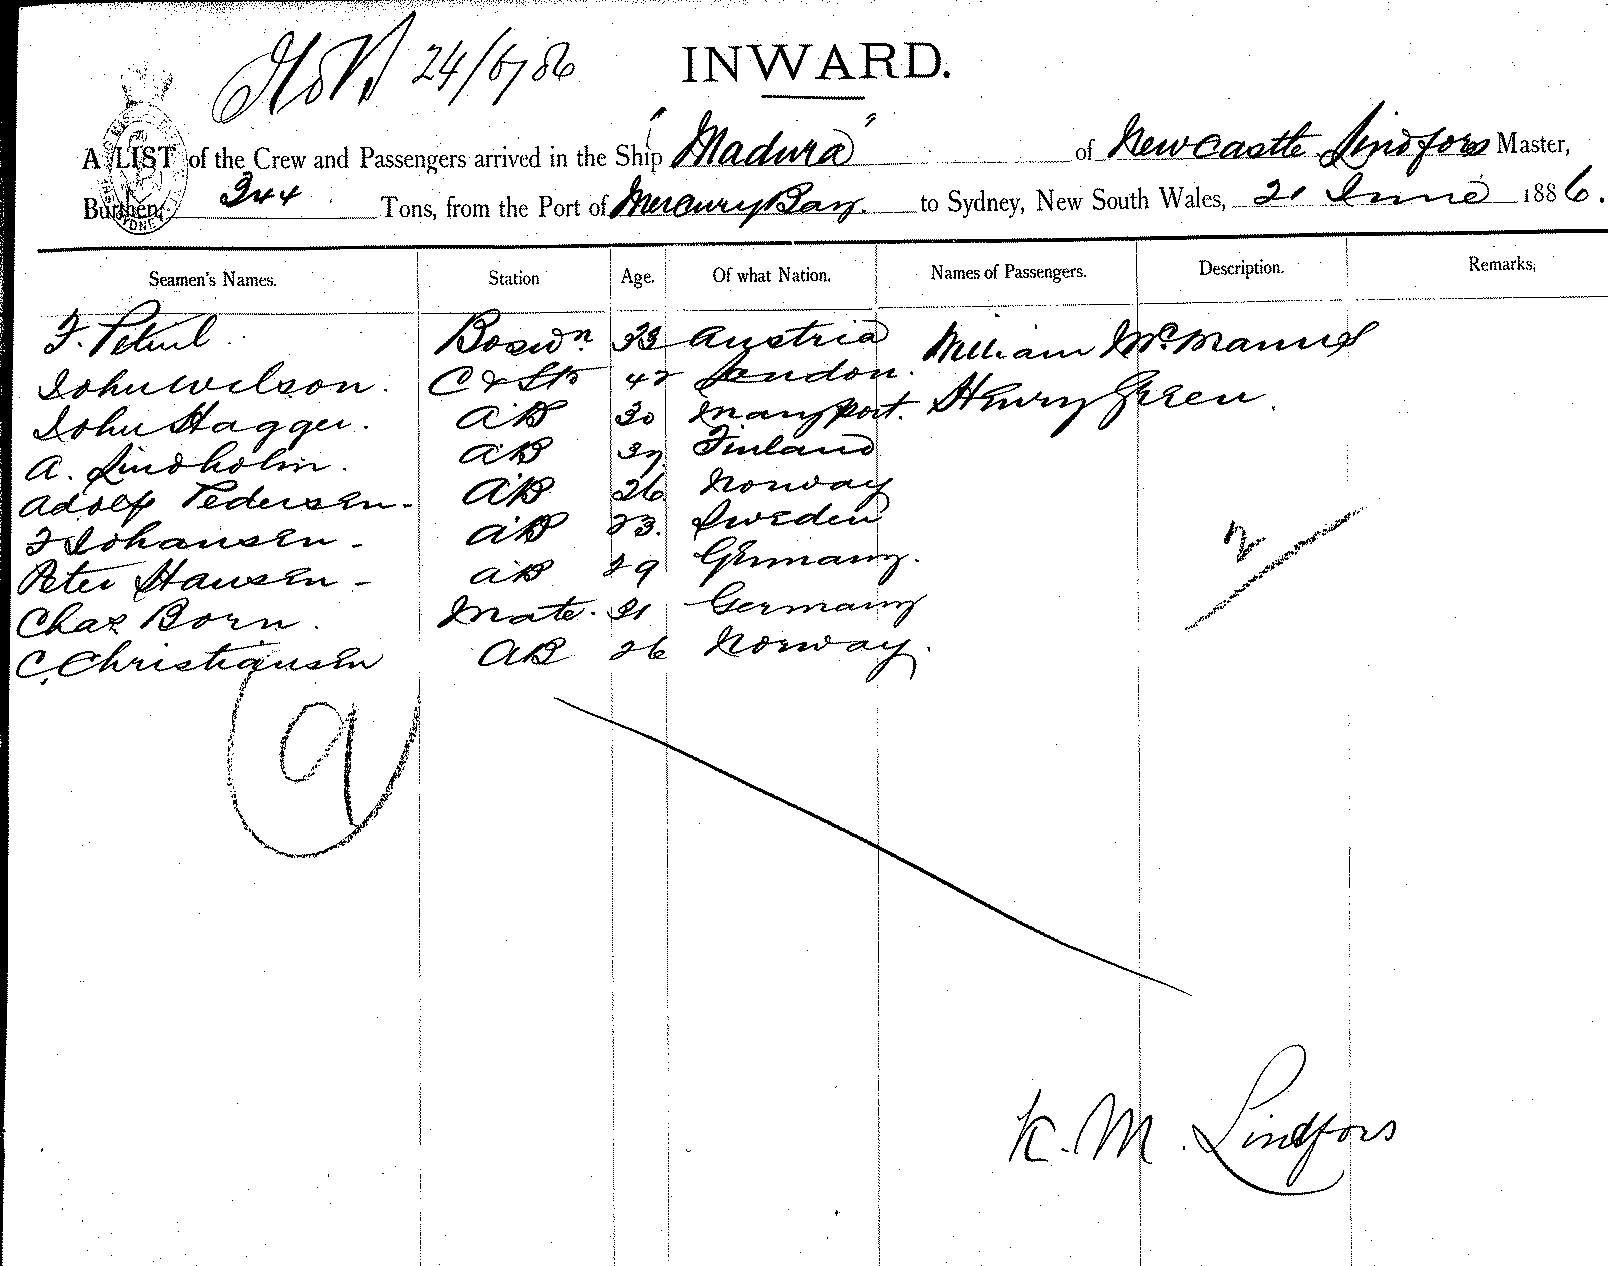 24/6/86
INWARD.
A LIST of the Crew and Passengers arrived in the Ship "Madura" of Newcastle Lindfors Master,
Burthen, 344 Tons, from the Port of Mercury Bay. to Sydney, New South Wales, 21 June 1886.
Seamen's Names. Station Age. Of what Nation. Names of Passengers. Description. Remarks,
F. Boswn 33 Austria William McManus
John Wilson. C & Std 42 London. Henry Green.
John Hagger. AB 30 Maryport.
A. Lindholm. AB 37 Finland
Adolf Pedersen - AB 26 Norway
F Johansen - AB 23. Sweden 2
Peter Hansen - AB 29 Germany.
Chas Born. Mate. 31 Germany
C. Christiansen AB 26 Norway.
9
K. M. Lindfors